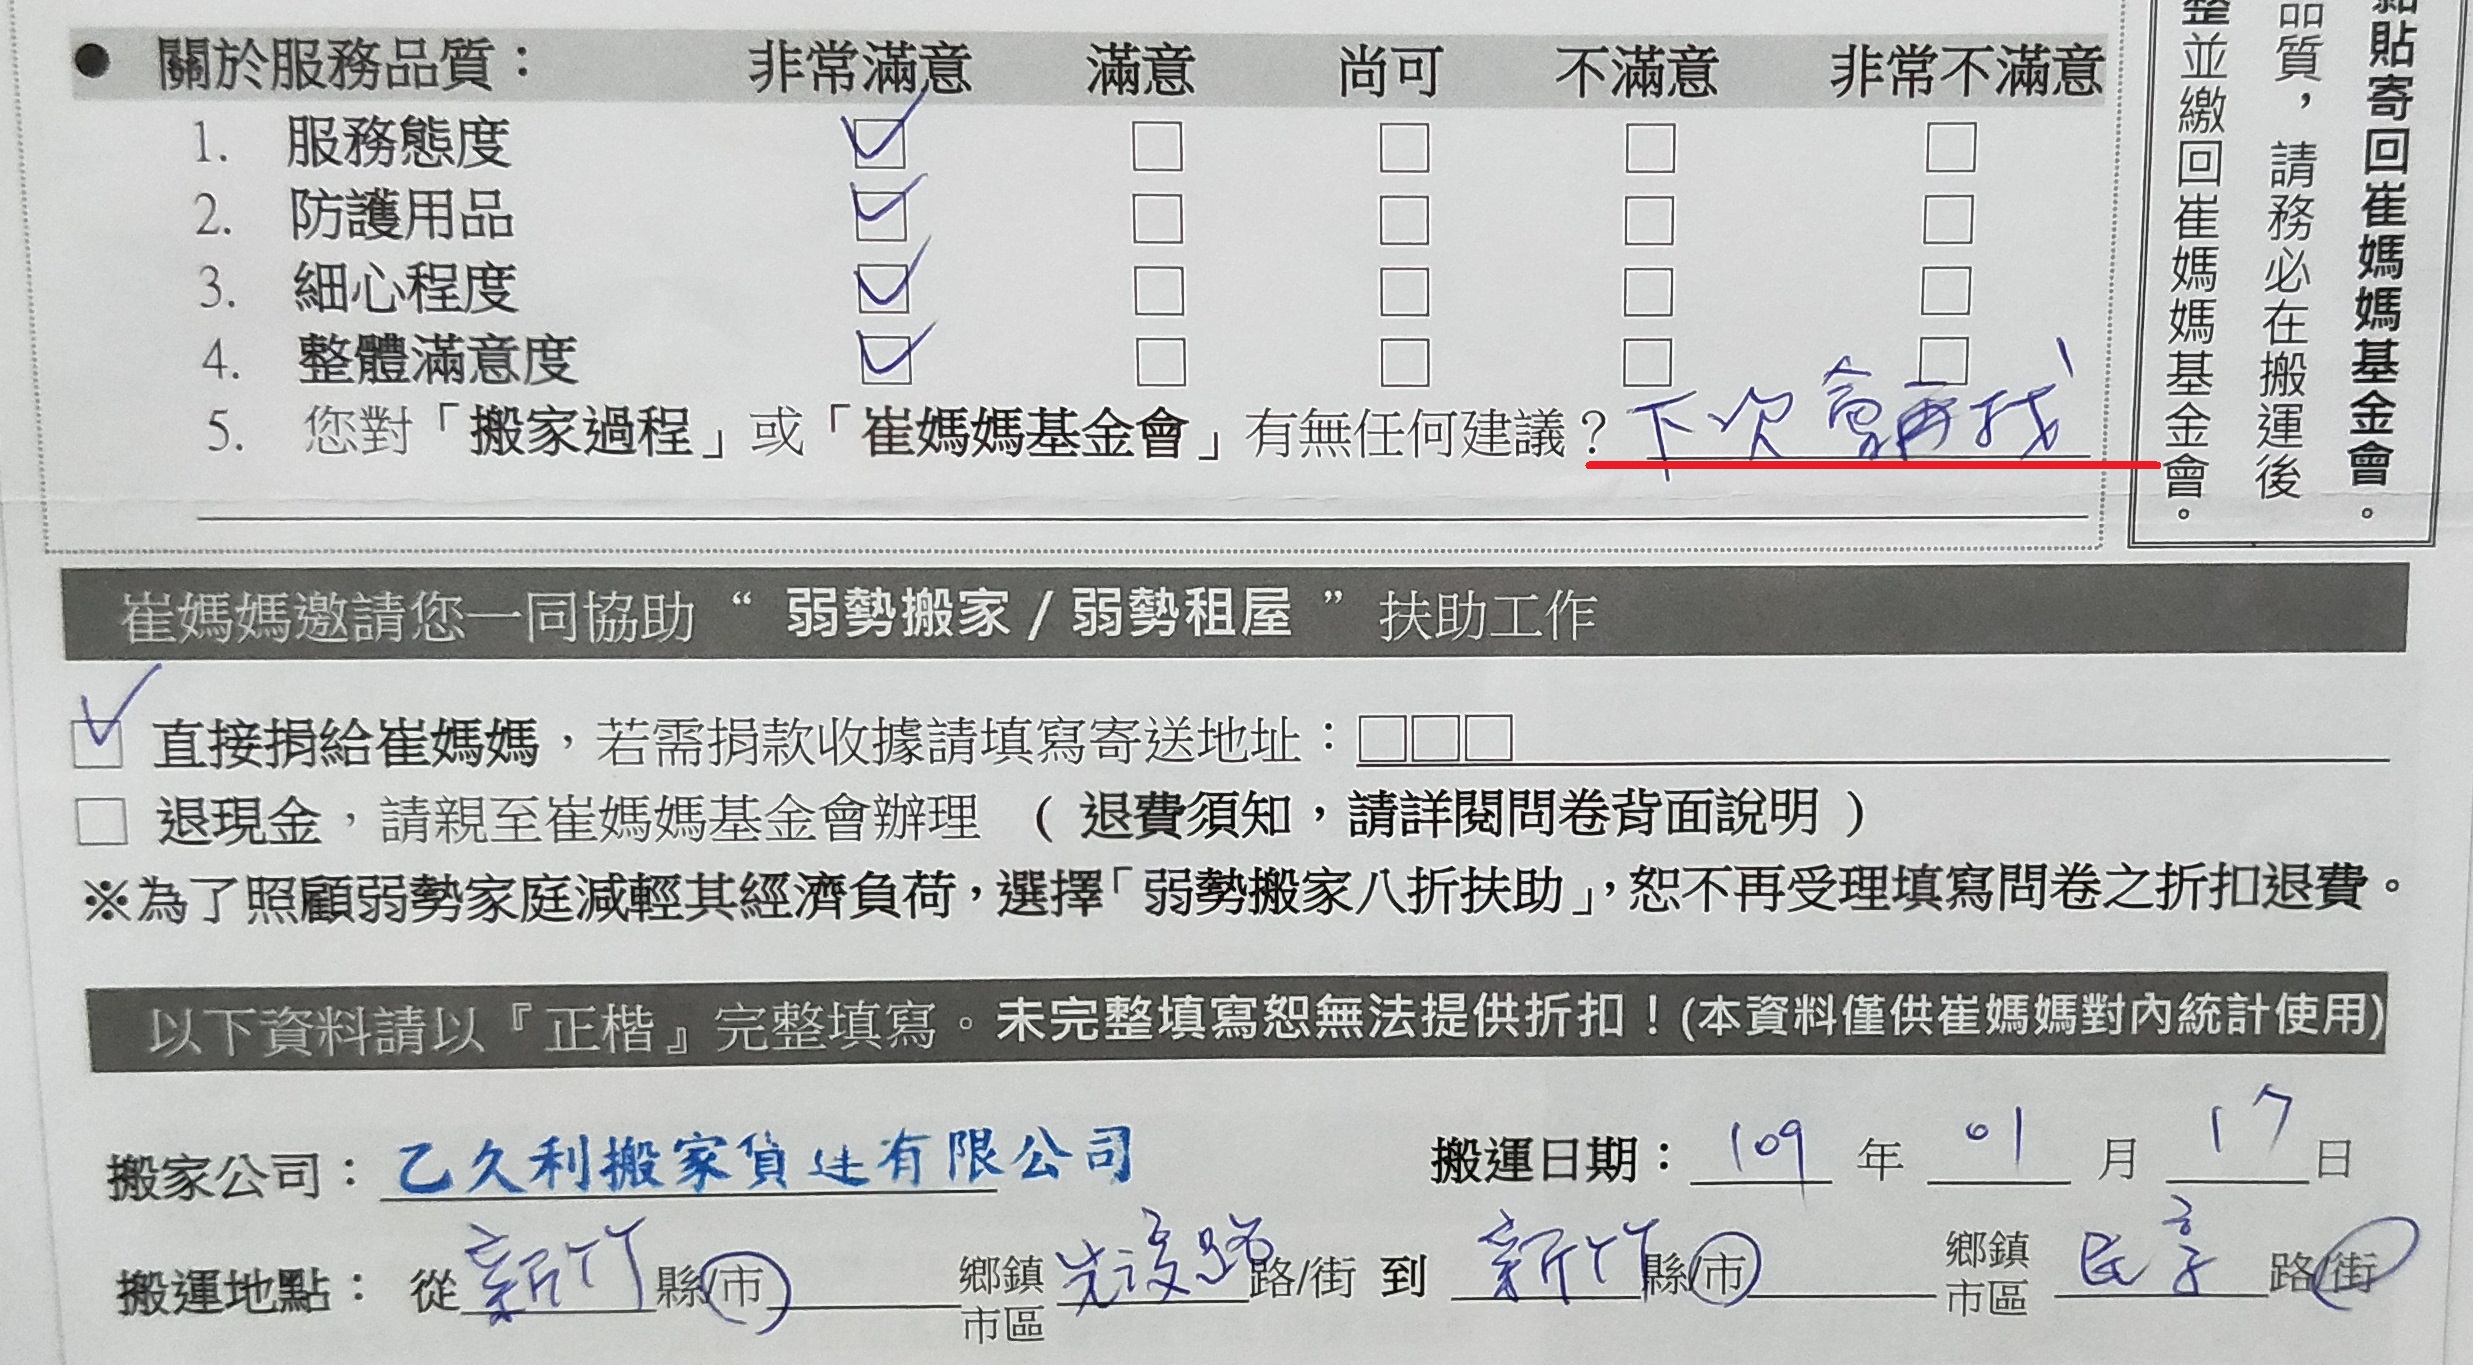 ● 關於服務品質： 非常滿意 滿意 尚可 不滿意 非常不滿意
1. 服務態度 ☑ □ □ □ □
2. 防護用品 ☑ □ □ □ □
3. 細心程度 ☑ □ □ □ □
4. 整體滿意度 ☑ □ □ □ □
5. 您對「搬家過程」或「崔媽媽基金會」有無任何建議？下次會再找
貼寄回崔媽媽基金會。
品質，請務必在搬運後
整並繳回崔媽媽基金會。
崔媽媽邀請您一同協助“弱勢搬家/弱勢租屋”扶助工作
☑ 直接捐給崔媽媽，若需捐款收據請填寫寄送地址：□□□
□ 退現金，請親至崔媽媽基金會辦理 (退費須知，請詳閱問卷背面說明)
※為了照顧弱勢家庭減輕其經濟負荷，選擇「弱勢搬家八折扶助」，恕不再受理填寫問卷之折扣退費。
以下資料請以『正楷』完整填寫。未完整填寫恕無法提供折扣！(本資料僅供崔媽媽對內統計使用)
搬家公司：乙久利搬家貨運有限公司 搬運日期：109年01月17日
搬運地點：從新竹縣/市 鄉鎮市區 路/街 到 新竹縣/市 鄉鎮市區 民享路/街